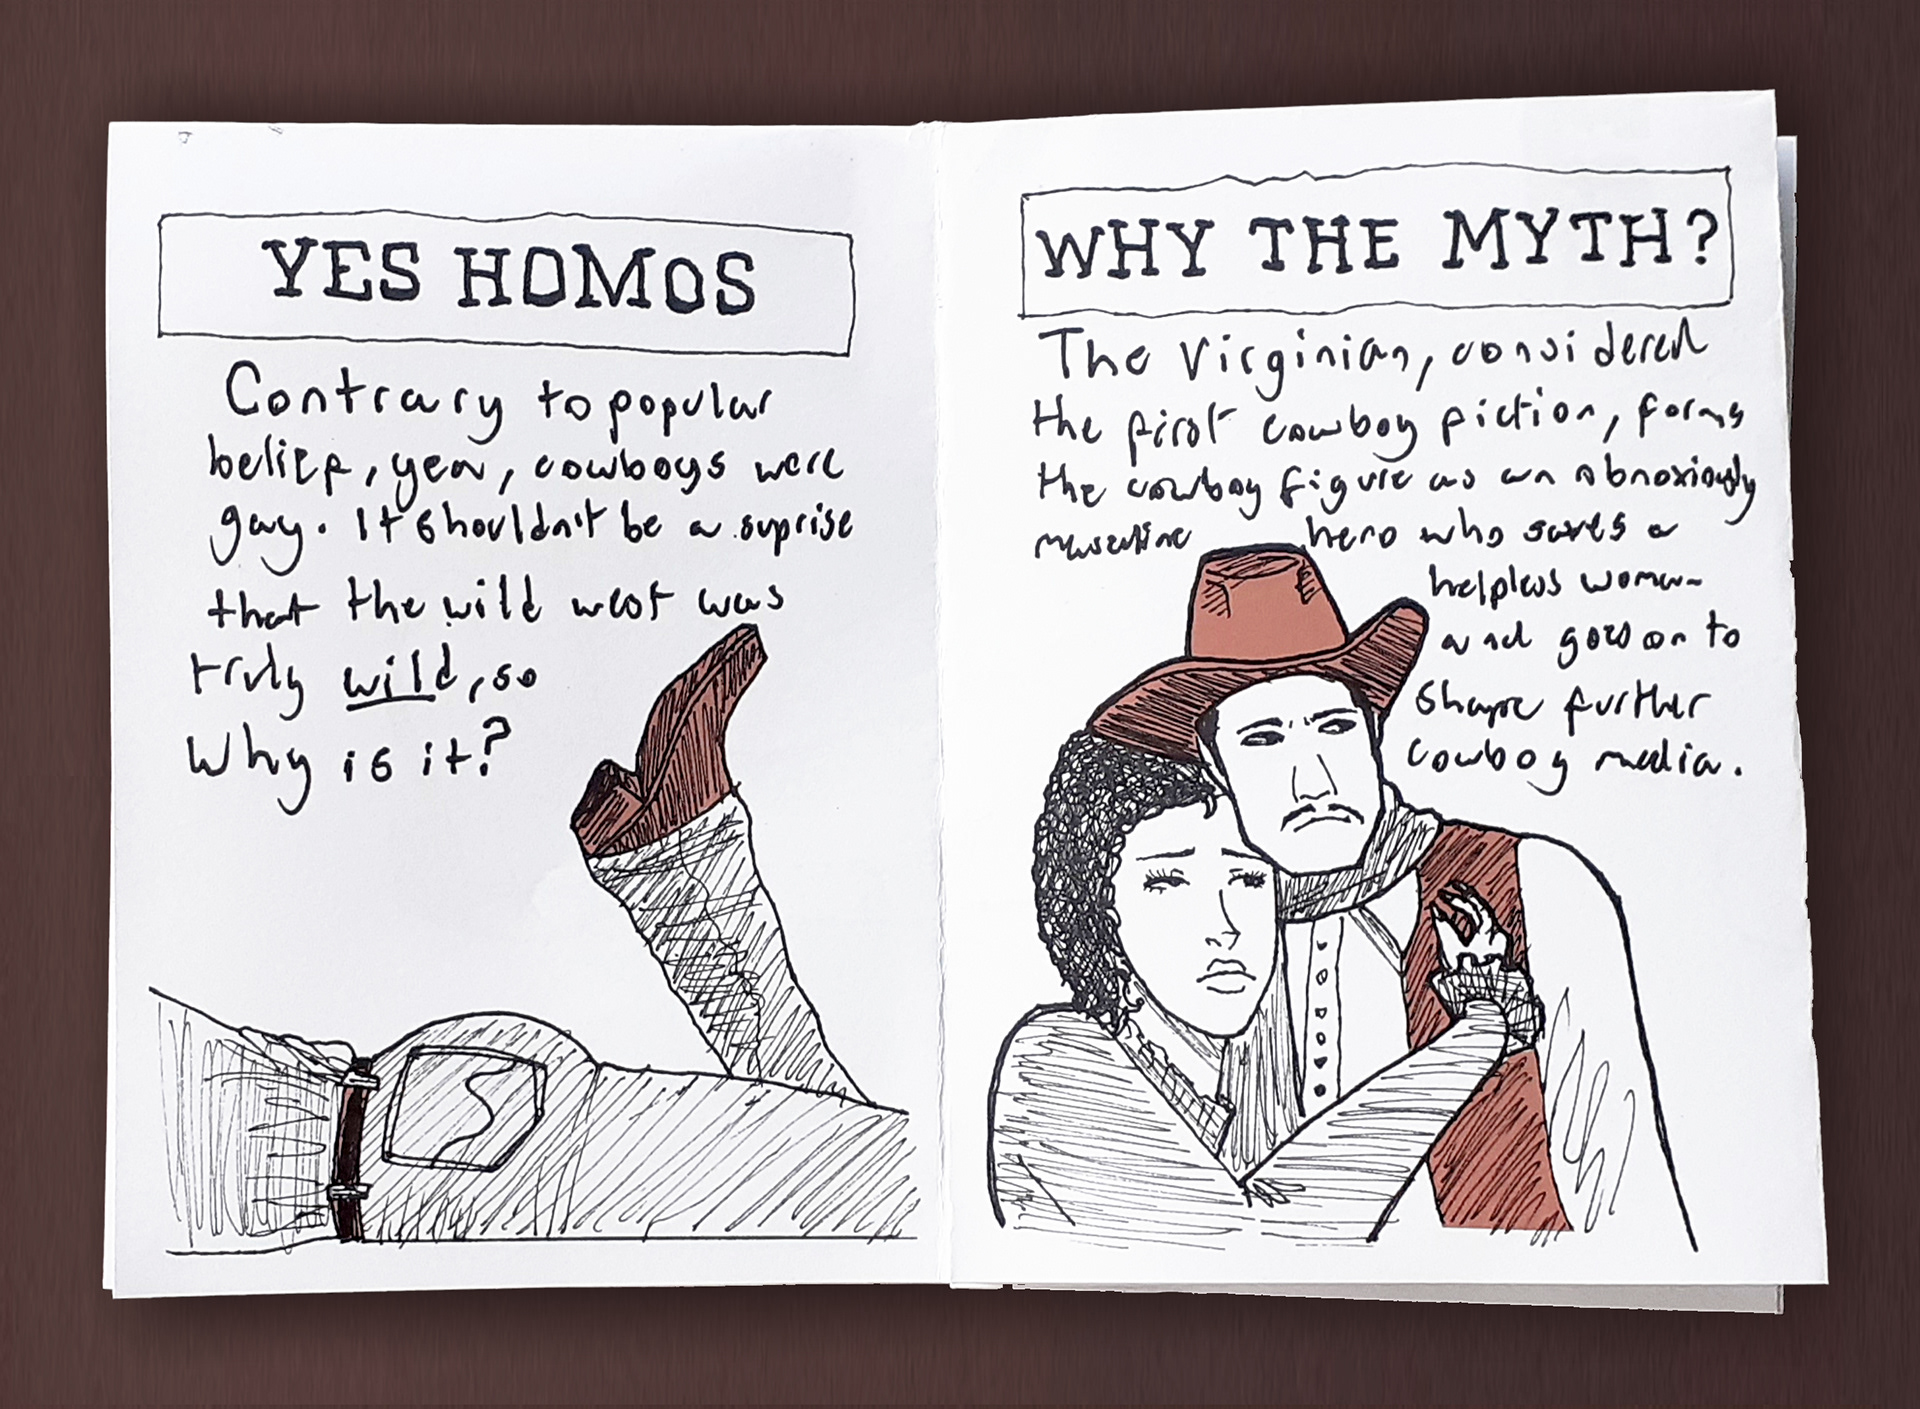 YES HOMOS
Contrary to popular
belief, yea, cowboys were
gay. It shouldn't be a suprise
that the wild west was
truly wild, so
Why is it?
WHY THE MYTH?
The Virginian, considered
the first cowboy fiction, forms
the cowboy figure as an obnoxiously
masculine hero who saves a
helpless woman
and goes on to
shape further
cowboy media.